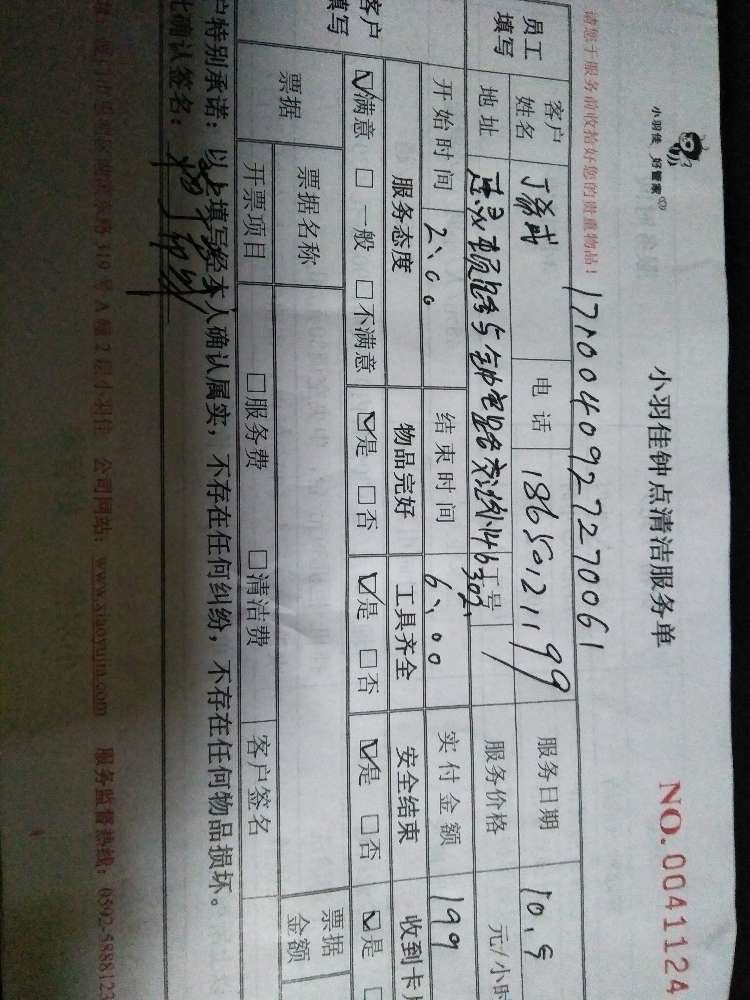 小羽佳 好管家
小羽佳钟点清洁服务单
NO.0041124
请您于服务前收拾好您的贵重物品！
1710040927270061
员工填写 客户姓名 电话 18650121199 服务日期 10.9
地址 工号 服务价格 元/小时
开始时间 2:00 结束时间 6:00 实付金额 199
客户填写 服务态度 物品完好 工具齐全 安全结束 收到卡片
☑满意 □一般 □不满意 ☑是 □否 ☑是 □否 ☑是 □否 ☑是 □
票据 票据名称 票据金额
开票项目 □服务费 □清洁费 客户签名
户特别承诺：以上填写经本人确认属实，不存在任何纠纷，不存在任何物品损坏。
此确认签名：
319号A幢2层小羽佳 公司网站：www.xiaoyujia.com 服务监督热线：0592-5888123